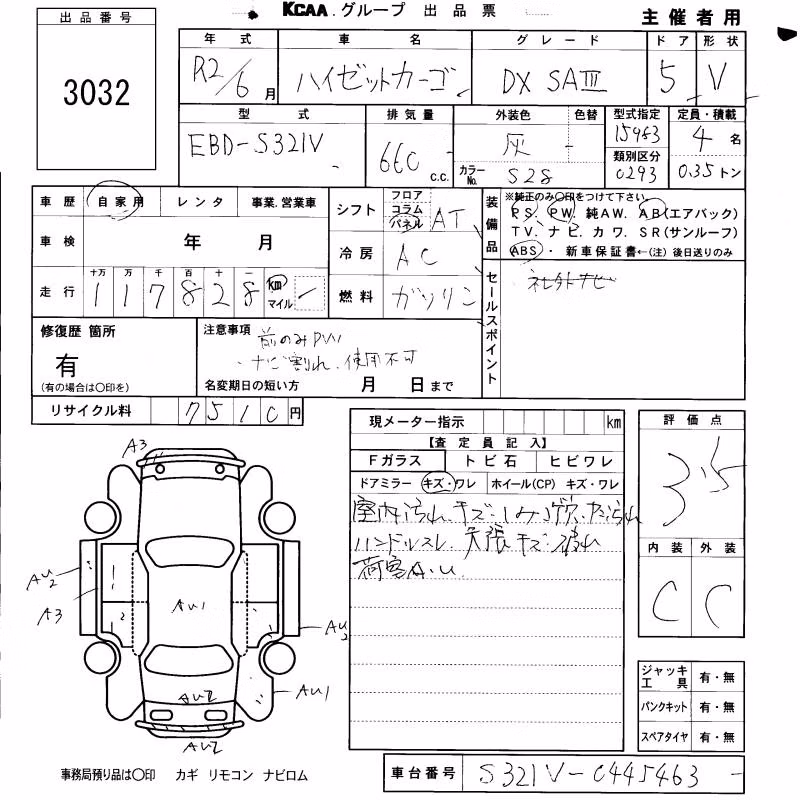 KCAA.グループ 出品票
主催者用
出品番号
3032
年式 車名 グレード ドア 形状
R2/6月 ハイゼットカーゴ DX SAIII 5 V
型式 排気量 外装色 色替 型式指定 定員・積載
EBD-S321V 660 c.c. 灰 15983 4名
カラーNo. S28 類別区分 0293 0.35トン
車歴 自家用 レンタ 事業.営業車
車検 年 月
走行 十万 万 千 百 十 一
1 1 7 8 2 8 km マイル
シフト フロア コラム パネル AT
冷房 AC
燃料 ガソリン
装備品
※純正のみ○印をつけて下さい。
PS. PW. 純AW. AB(エアバック)
TV. ナビ. カワ. SR(サンルーフ)
ABS. 新車保証書←(注) 後日送りのみ
セールスポイント
社外ナビ
修復歴 箇所
有
(有の場合は○印を)
注意事項
前のみPW
・ナビ割れ、使用不可
名変期日の短い方 月 日まで
リサイクル料 7510円
現メーター指示 km
【査定員記入】
Fガラス トビ石 ヒビワレ
ドアミラー キズ・ワレ ホイール(CP) キズ・ワレ
室内汚れ キズ
ハンドルスレ 天張キズ
荷室A.U.
評価点
3.5
内装 外装
C C
ジャッキ工具 有・無
パンクキット 有・無
スペアタイヤ 有・無
A3
AU2
A3
AU1
AU2
AU1
AU2
AU2
事務局預り品は○印 カギ リモコン ナビロム
車台番号 S321V-0445463